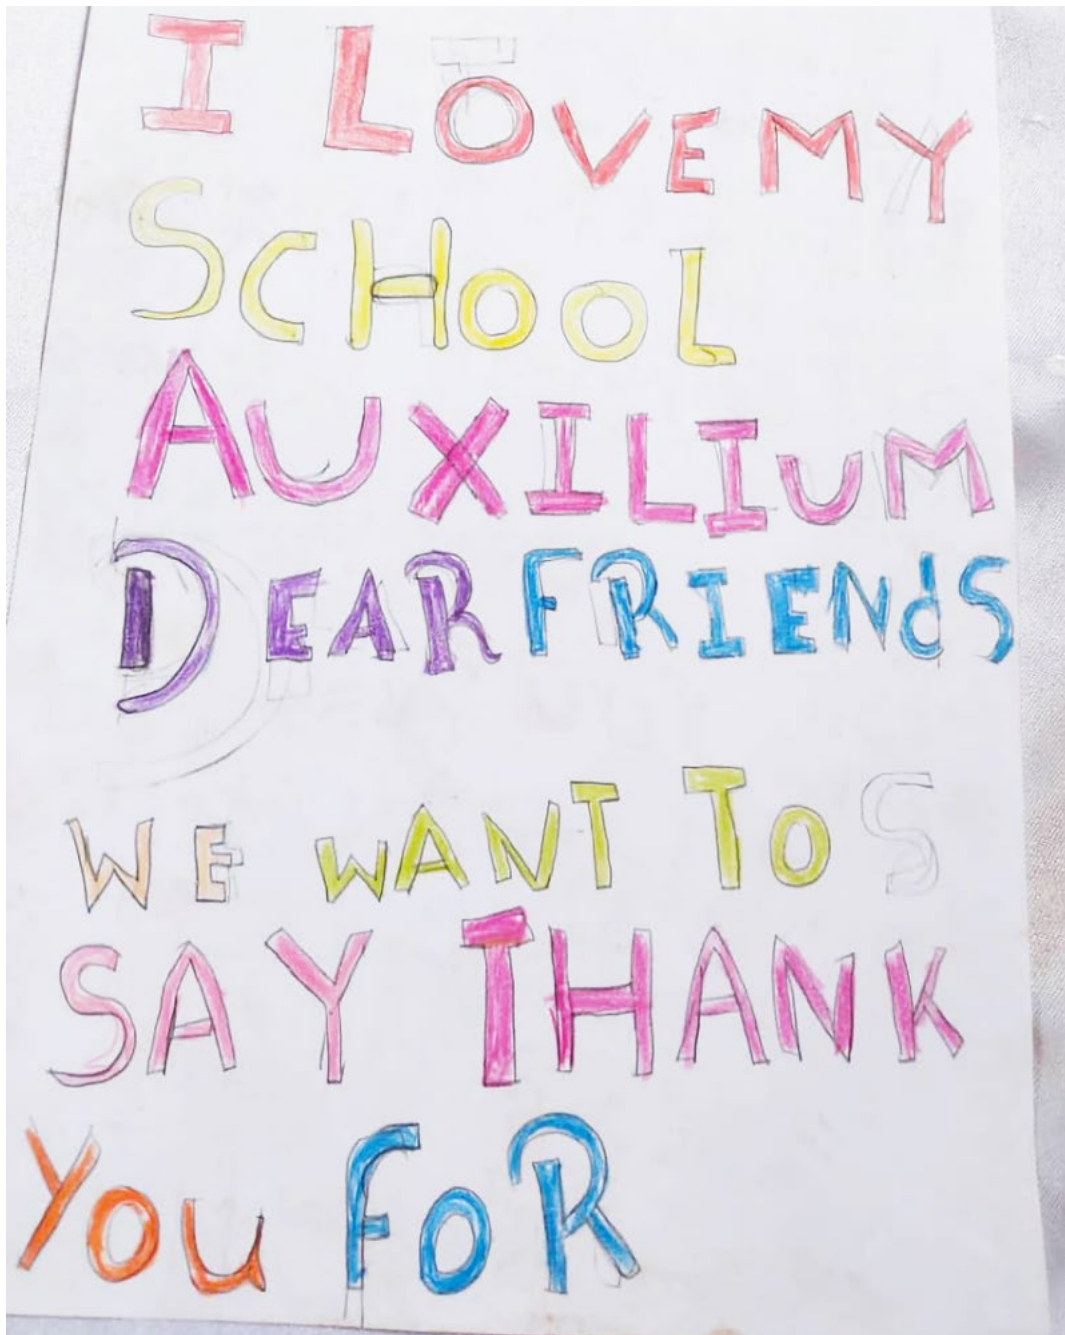 I LOVE MY
SCHOOL
AUXILIUM
DEAR FRIENdS
WE WANT TO S
SAY THANK
YOu FOR